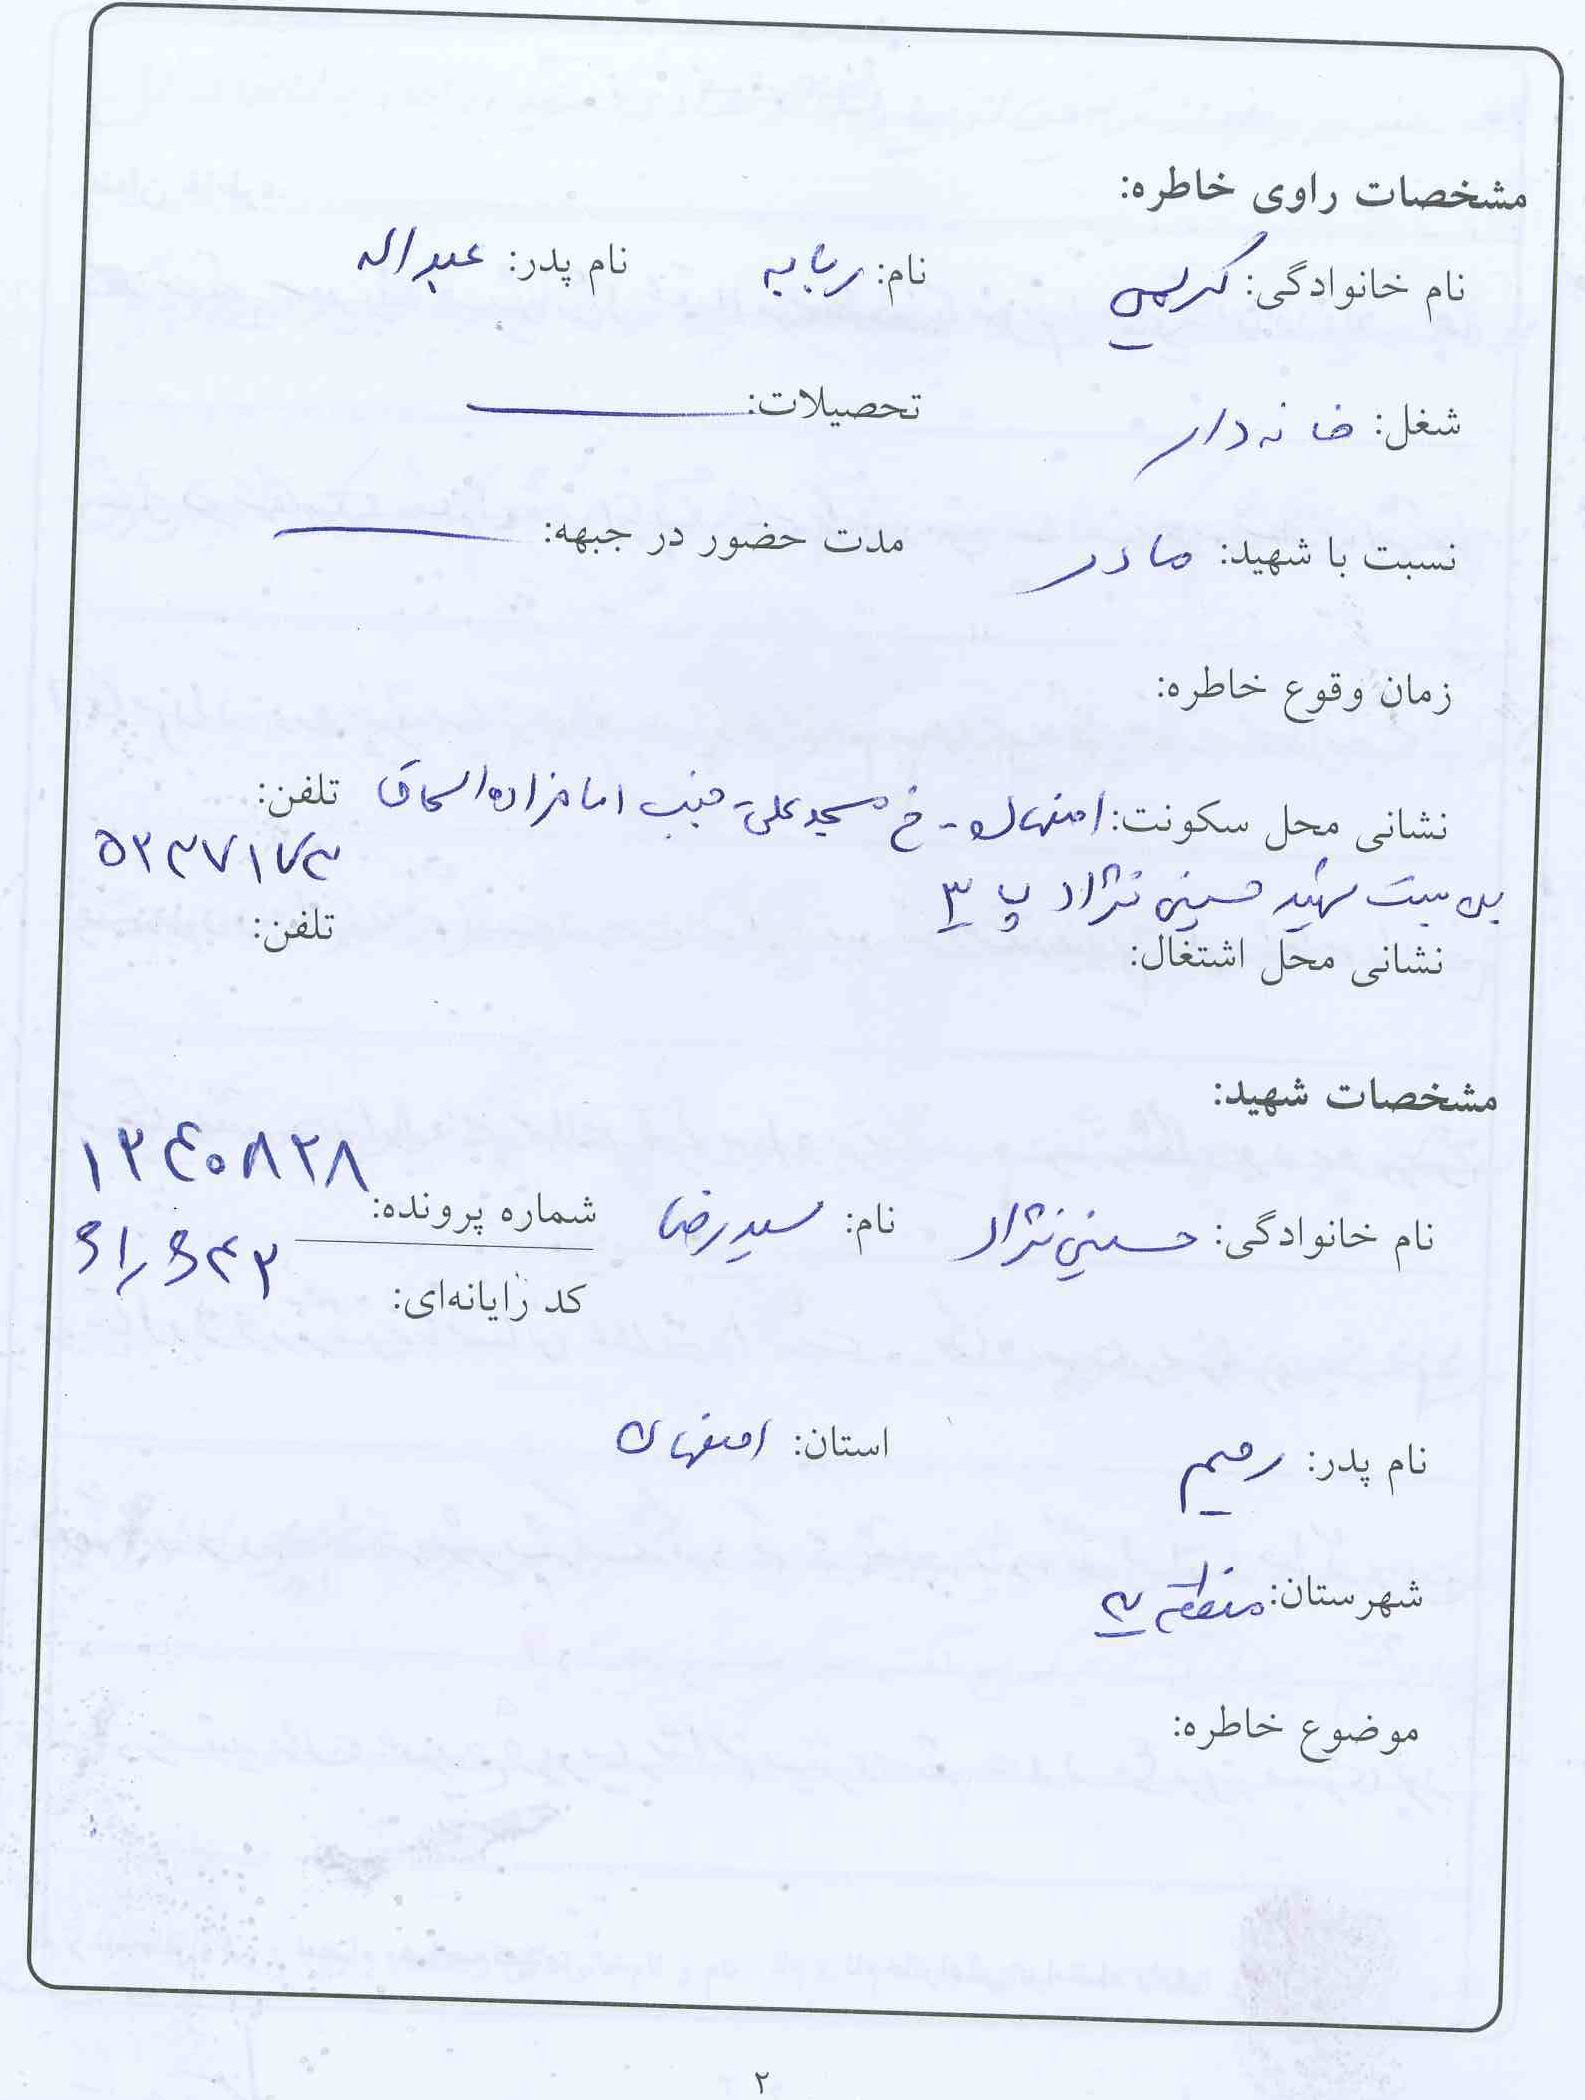 مشخصات راوی خاطره:
نام خانوادگی: کریمی نام: ربابه نام پدر: عبداله
شغل: خانه دار تحصیلات:
نسبت با شهید: مادر مدت حضور در جبهه:
زمان وقوع خاطره:
نشانی محل سکونت: اصفهان - خ مسجدعلی - جنب امامزاده اسحاق تلفن:
بن بست شهید حسینی نژاد پ ۳ ۵۲۳۷۱۷۳
نشانی محل اشتغال: تلفن:
مشخصات شهید:
۱۳۴۰۸۲۸
نام خانوادگی: حسینی نژاد نام: سیدرضا شماره پرونده:
کد رایانه‌ای:
نام پدر: رحیم استان: اصفهان
شهرستان: منطقه ۳
موضوع خاطره:
۲